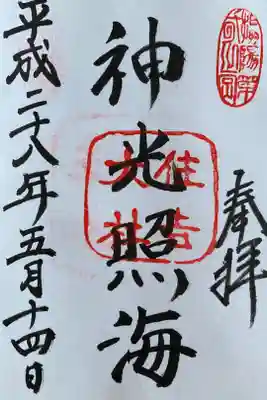 奉拝
神光照海
平成二十八年五月十四日